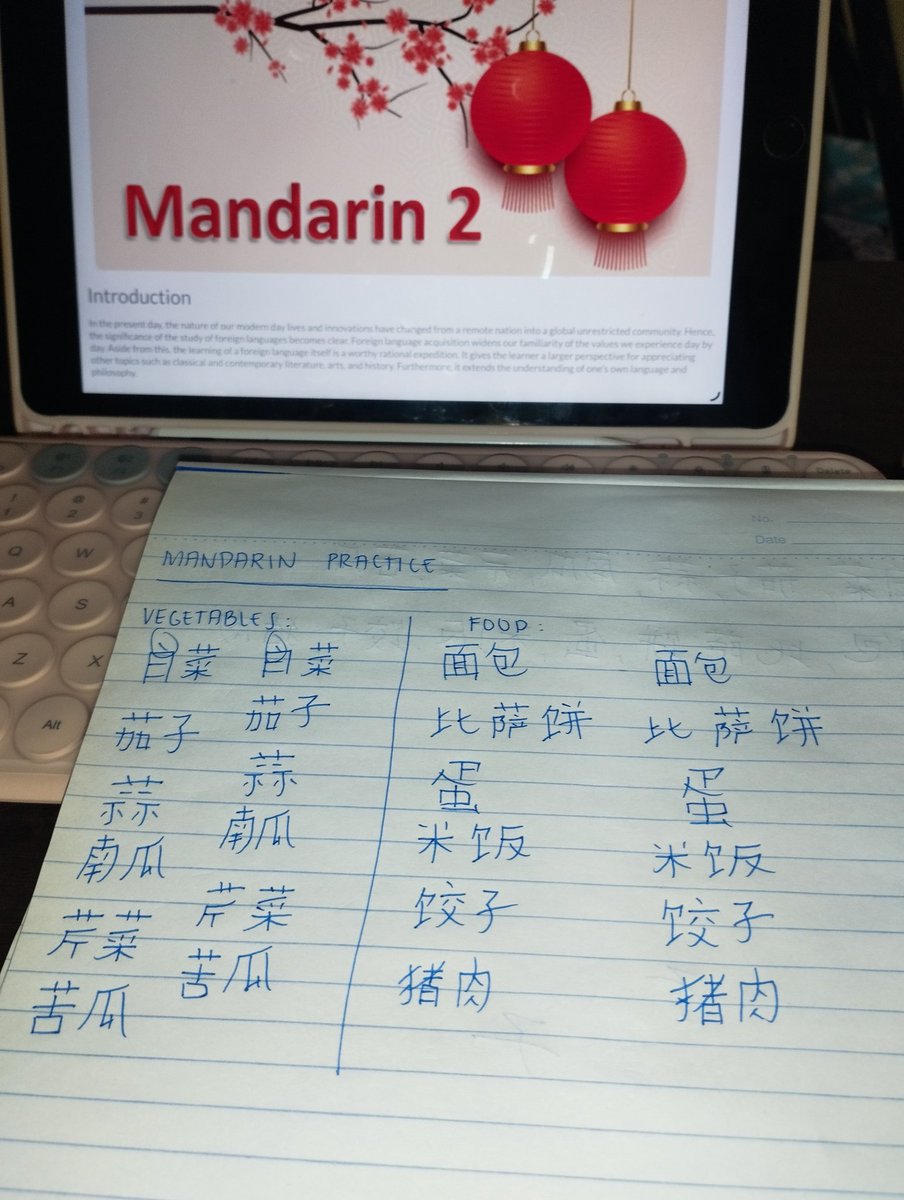 Mandarin 2
Introduction
In the present day, the nature of our modern day lives and innovations have changed from a remote nation into a global unrestricted community. Hence,
the significance of the study of foreign languages becomes clear. Foreign language acquisition widens our familiarity of the values we experience day by
day. Aside from this, the learning of a foreign language itself is a worthy rational expedition. It gives the learner a larger perspective for appreciating
other topics such as classical and contemporary literature, arts, and history. Furthermore, it extends the understanding of one's own language and
philosophy.
Delete
! 1 @ 2 # 3
Q W
A S
Z X
Alt
No.
Date
MANDARIN PRACTICE
VEGETABLES:
白菜 白菜
茄子 茄子
蒜 蒜
南瓜 南瓜
芹菜 芹菜
苦瓜 苦瓜
FOOD:
面包 面包
比萨饼 比萨饼
蛋 蛋
米饭 米饭
饺子 饺子
猪肉 猪肉